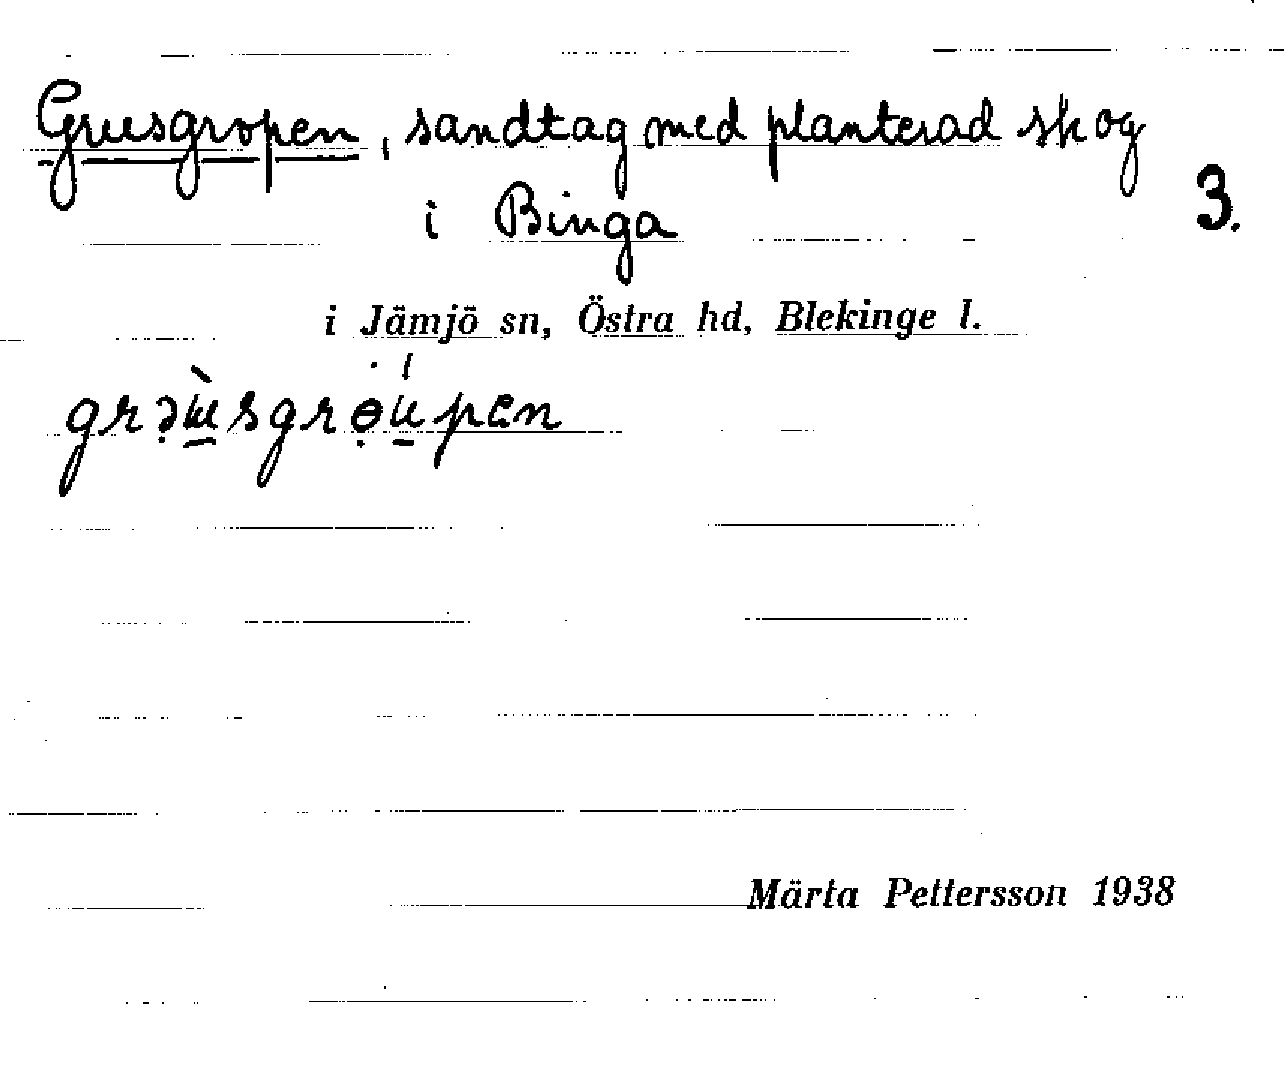 Grusgropen, sandtag med planterad skog
i Binga
3.
i Jämjö sn, Östra hd, Blekinge l.
Märta Pettersson 1938